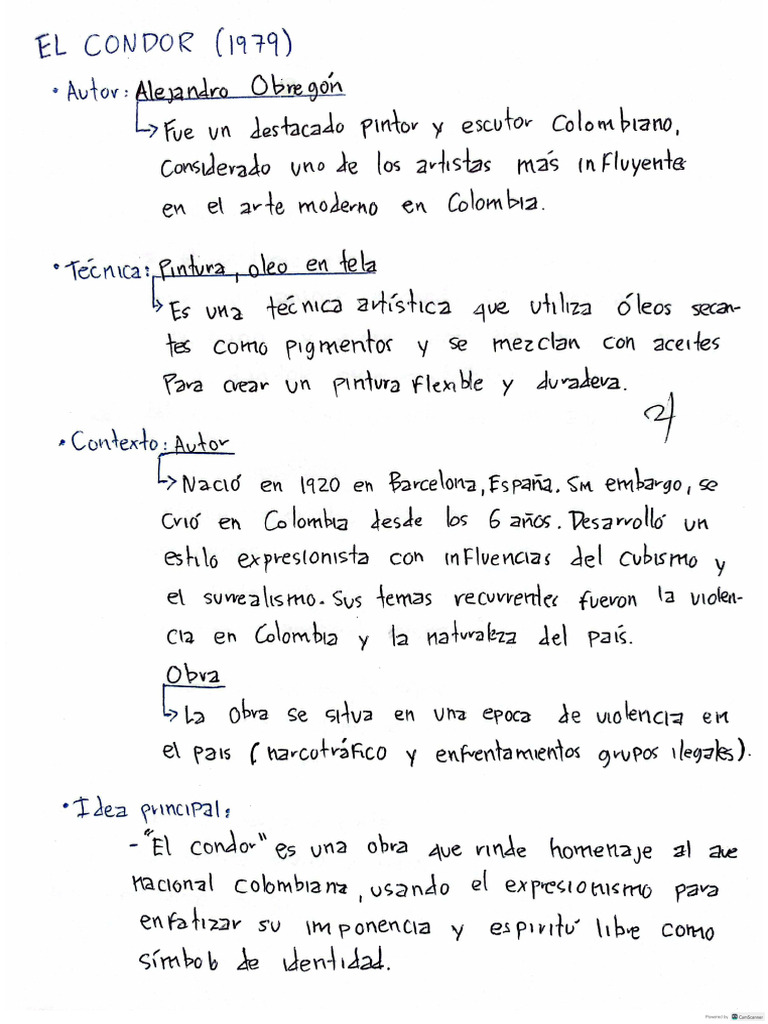 EL CONDOR (1979)
• Autor: Alejandro Obregón
↳ Fue un destacado pintor y escutor Colombiano,
Considerado uno de los artistas más influyente
en el arte moderno en Colombia.
• Técnica: Pintura, oleo en tela
↳ Es una técnica artística que utiliza óleos secan-
tes como pigmentos y se mezclan con aceites
Para crear un pintura flexible y duradera.
2
• Contexto: Autor
↳ Nació en 1920 en Barcelona, España. Sin embargo, se
Crió en Colombia desde los 6 años. Desarrolló un
estilo expresionista con influencias del cubismo y
el surrealismo. Sus temas recurrentes fueron la violen-
cia en Colombia y la naturaleza del país.
Obra
↳ La obra se situa en una epoca de violencia en
el pais (narcotráfico y enfrentamientos grupos ilegales).
• Idea principal:
- "El condor" es una obra que rinde homenaje al ave
nacional colombiana, usando el expresionismo para
enfatizar su imponencia y espiritú libre como
símbolo de identidad.
Powered by CamScanner